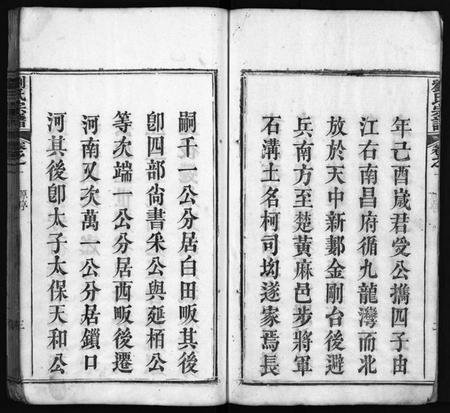 劉氏宗譜
年己酉歲君受公攜四子由
江右南昌府循九龍灣而北
放於天中新鄼金剛台後避
兵南方至楚黃麻邑步將軍
石溝土名柯司㘭遂家焉長
嗣千一公分居白田畈其後
卽四部尙書朱公與延栢公
等次端一公分居西畈後遷
河南又次萬一公分居鎖口
河其後卽太子太保天和公
劉氏宗譜